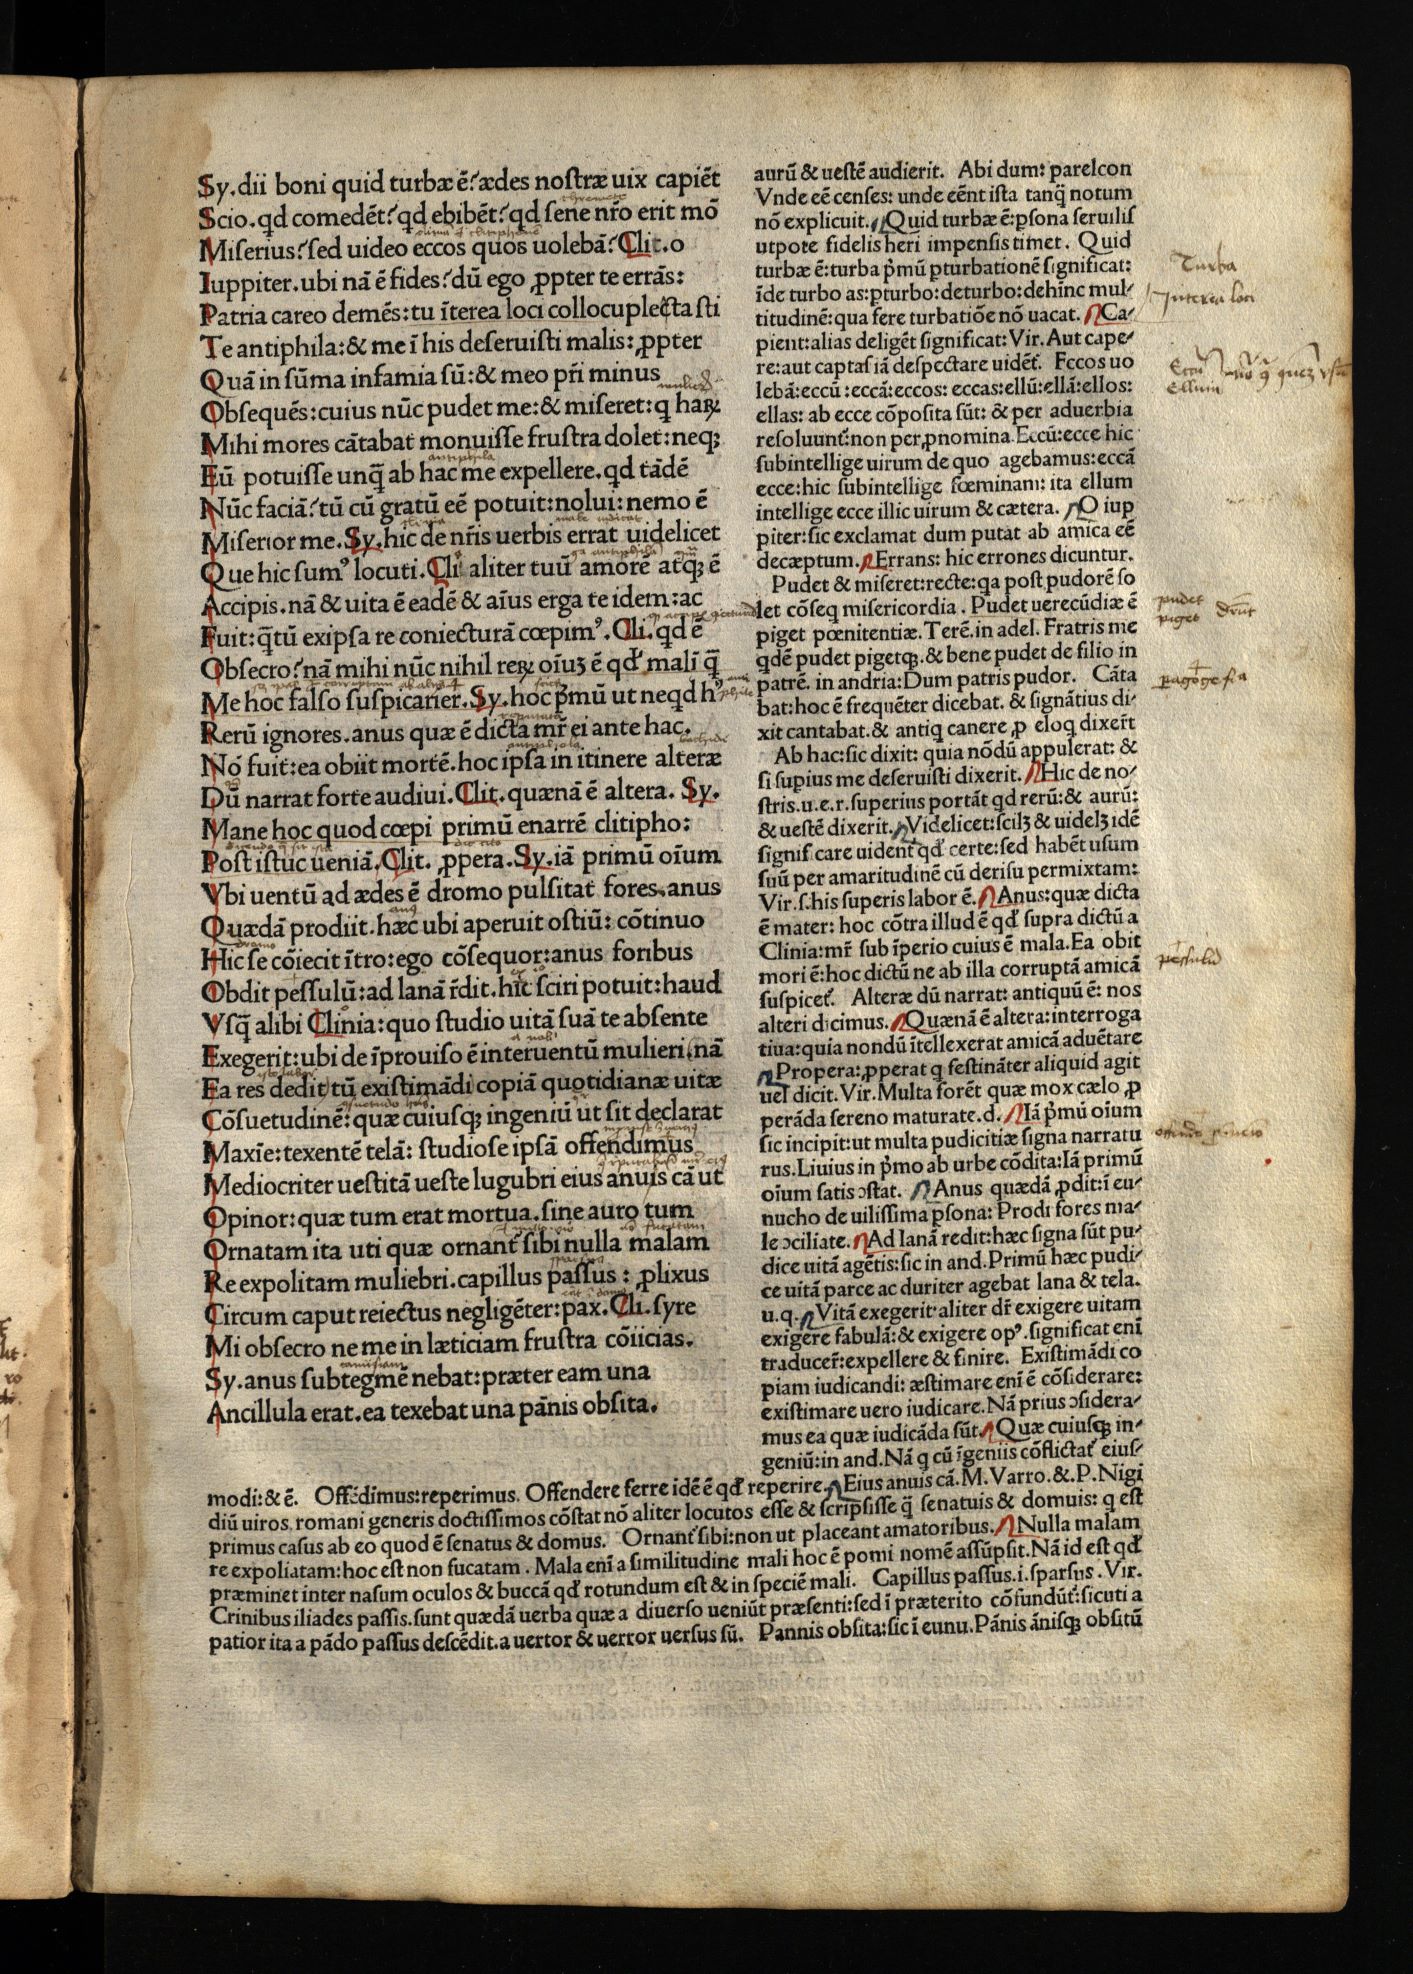 Sy.dii boni quid turbæ ē?ædes nostræ uix capiēt
Scio.qd comedēt?qd ebibēt?qd sene nr̄o erit mō
Miserius?sed uideo eccos quos uolebā?Clit.o
Iuppiter.ubi nā ē fides?dū ego ꝓpter te errās:
Patria careo demēs:tu īterea loci collocuplecta sti
Te antiphila:& me ī his deseruisti malis:ꝓpter
Quā in sūma infamia sū:& meo pr̄i minus
Obsequēs:cuius nūc pudet me:& miseret:q haꝝ
Mihi mores cātabat monuisse frustra dolet:neqꝫ
Eū potuisse unq̄ ab hac me expellere.qd tādē
Nūc faciā?tū cū gratū eē potuit:nolui:nemo ē
Miserior me.Sy.hic de nr̄is uerbis errat uidelicet
Que hic sumꝰ locuti.Cli aliter tuū amorē atqꝫ ē
Accipis.nā & uita ē eadē & aīus erga te idem:ac
Fuit:q̄tū exipsa re coniecturā cœpimꝰ.Cli.qd ē
Obsecro?nā mihi nūc nihil reꝝ oīuꝫ ē qd' malī q̄
Me hoc falso suspicarier.Sy.hoc p̄mū ut neqd hꝰ
Rerū ignores.anus quæ ē dicta mr̄ ei ante hac.
Nō fuit:ea obiit mortē.hoc ipsa in itinere alteræ
Dū narrat forte audiui.Clit.quænā ē altera. Sy.
Mane hoc quod cœpi primū enarrē clitipho:
Post istuc ueniā.Clit. ꝓpera.Sy.iā primū oīum
Vbi uentū ad ædes ē dromo pulsitat fores.anus
Quædā prodiit.hæc ubi aperuit ostiū: cōtinuo
Hic se cōiecit ītro:ego cōsequor:anus foribus
Obdit pessulū:ad lanā r̄dit.hīc sciri potuit:haud
Vsq̄ alibi Clinia:quo studio uitā suā te absente
Exegerit:ubi de īprouiso ē interuentū mulieri.nā
Ea res dedit tū existimādi copiā quotidianæ uitæ
Cōsuetudinē:quæ cuiusqꝫ ingeniū ut sit declarat
Maxīe:texentē telā: studiose ipsā offendimus
Mediocriter uestitā ueste lugubri eius anuis cā ut
Opinor:quæ tum erat mortua.sine auro tum
Ornatam ita uti quæ ornant' sibi nulla malam
Re expolitam muliebri.capillus passus : ꝓlixus
Circum caput reiectus negligēter:pax.Cli.syre
Mi obsecro ne me in læticiam frustra cōiicias.
Sy.anus subtegmē nebat:præter eam una
Ancillula erat.ea texebat una pānis obsita.
aurū & uestē audierit. Abi dum: parelcon
Vnde eē censes: unde eēnt ista tanq̄ notum
nō explicuit. Quid turbæ ē:ꝑsona seruilis
utpote fidelis heri impensis timet. Quid
turbæ ē:turba p̄mū ꝑturbationē significat:
īde turbo as:ꝑturbo:deturbo:dehinc mul-
titudinē:qua fere turbatiōe nō uacat. Ca-
pient:alias deligēt significat:Vir.Aut cape-
re:aut captas iā despectare uidēt'. Eccos uo
lebā:eccū :eccā:eccos: eccas:ellū:ellā:ellos:
ellas: ab ecce cōposita sūt: & per aduerbia
resoluunt':non per ꝓnomina.Eccū:ecce hic
subintellige uirum de quo agebamus:eccā
ecce:hic subintellige fœminam: ita ellum
intellige ecce illic uirum & cætera. O iup
piter:sic exclamat dum putat ab amica eē
decæptum. Errans: hic errones dicuntur.
Pudet & miseret:recte:qa post pudorē so
let cōseq misericordia. Pudet uerecūdiæ ē
piget pœnitentiæ.Terē.in adel. Fratris me
qdē pudet pigetqꝫ.& bene pudet de filio in
patrē. in andria:Dum patris pudor. Cāta
bat:hoc ē frequēter dicebat. & signātius di-
xit cantabat.& antiq canere ꝓ eloq dixer̄t
Ab hac:sic dixit: quia nōdū appulerat: &
si suꝑius me deseruisti dixerit. Hic de no-
stris.u.e.r.superius portāt qd rerū:& aurū:
& uestē dixerit. Videlicet:scilꝫ & uidelꝫ idē
significare uident' qd' certe:sed habēt usum
suū per amaritudinē cū derisu permixtam:
Vir.s.his superis labor ē. Anus:quæ dicta
ē mater: hoc cōtra illud ē qd' supra dictū a
Clinia:mr̄ sub īperio cuius ē mala.Ea obit
mori ē:hoc dictū ne ab illa corruptā amicā
suspicet'. Alteræ dū narrat: antiquū ē: nos
alteri dicimus. Quænā ē altera:interroga
tiua:quia nondū ītellexerat amicā aduētare
Propera:ꝓperat q festināter aliquid agit
uel dicit.Vir.Multa forēt quæ mox cælo ꝓ
perāda sereno maturate.d. Iā p̄mū oīum
sic incipit:ut multa pudicitiæ signa narratu
rus.Liuius in p̄mo ab urbe cōdita:Iā primū
oīum satis ↄstat. Anus quædā ꝓdit:ī eu-
nucho de uilissima ꝑsona: Prodi fores ma-
le ↄciliate. Ad lanā redit:hæc signa sūt pu-
dice uitā agētis:sic in and.Primū hæc pudi-
ce uitā parce ac duriter agebat lana & tela.
u.q. Vitā exegerit:aliter dr̄ exigere uitam
exigere fabulā:& exigere opꝰ.significat enī
traducer̄:expellere & finire. Existimādi co
piam iudicandi: æstimare enī ē cōsiderare:
existimare uero iudicare.Nā prius ↄsidera-
mus ea quæ iudicāda sūt. Quæ cuiusqꝫ in-
geniū:in and.Nā q cū īgeniis cōflictat' eius-
modi:& ē. Offēdimus:reperimus. Offendere ferre idē ē qd' reperire. Eius anuis cā.M.Varro.&.P.Nigi
diū uiros romani generis doctissimos cōstat nō aliter locutos esse & scripsisse q̄ senatuis & domuis: q est
primus casus ab eo quod ē senatus & domus. Ornant' sibi:non ut placeant amatoribus. Nulla malam
re expoliatam:hoc est non fucatam. Mala enī a similitudine mali hoc ē pomi nomē assūpsit.Nā id est qd'
præminet inter nasum oculos & buccā qd' rotundum est & in speciē mali. Capillus passus.i.sparsus. Vir.
Crinibus iliades passis.sunt quædā uerba quæ a diuerso ueniūt præsenti:sed ī præterito cōfundūt':sicuti a
patior ita a pādo passus descēdit.a uertor & uerror uersus sū. Pannis obsita:sic ī eunu.Pānis ānisqꝫ obsitū
Turba
Interea loci
Eccū
Ellum
pudet
piget